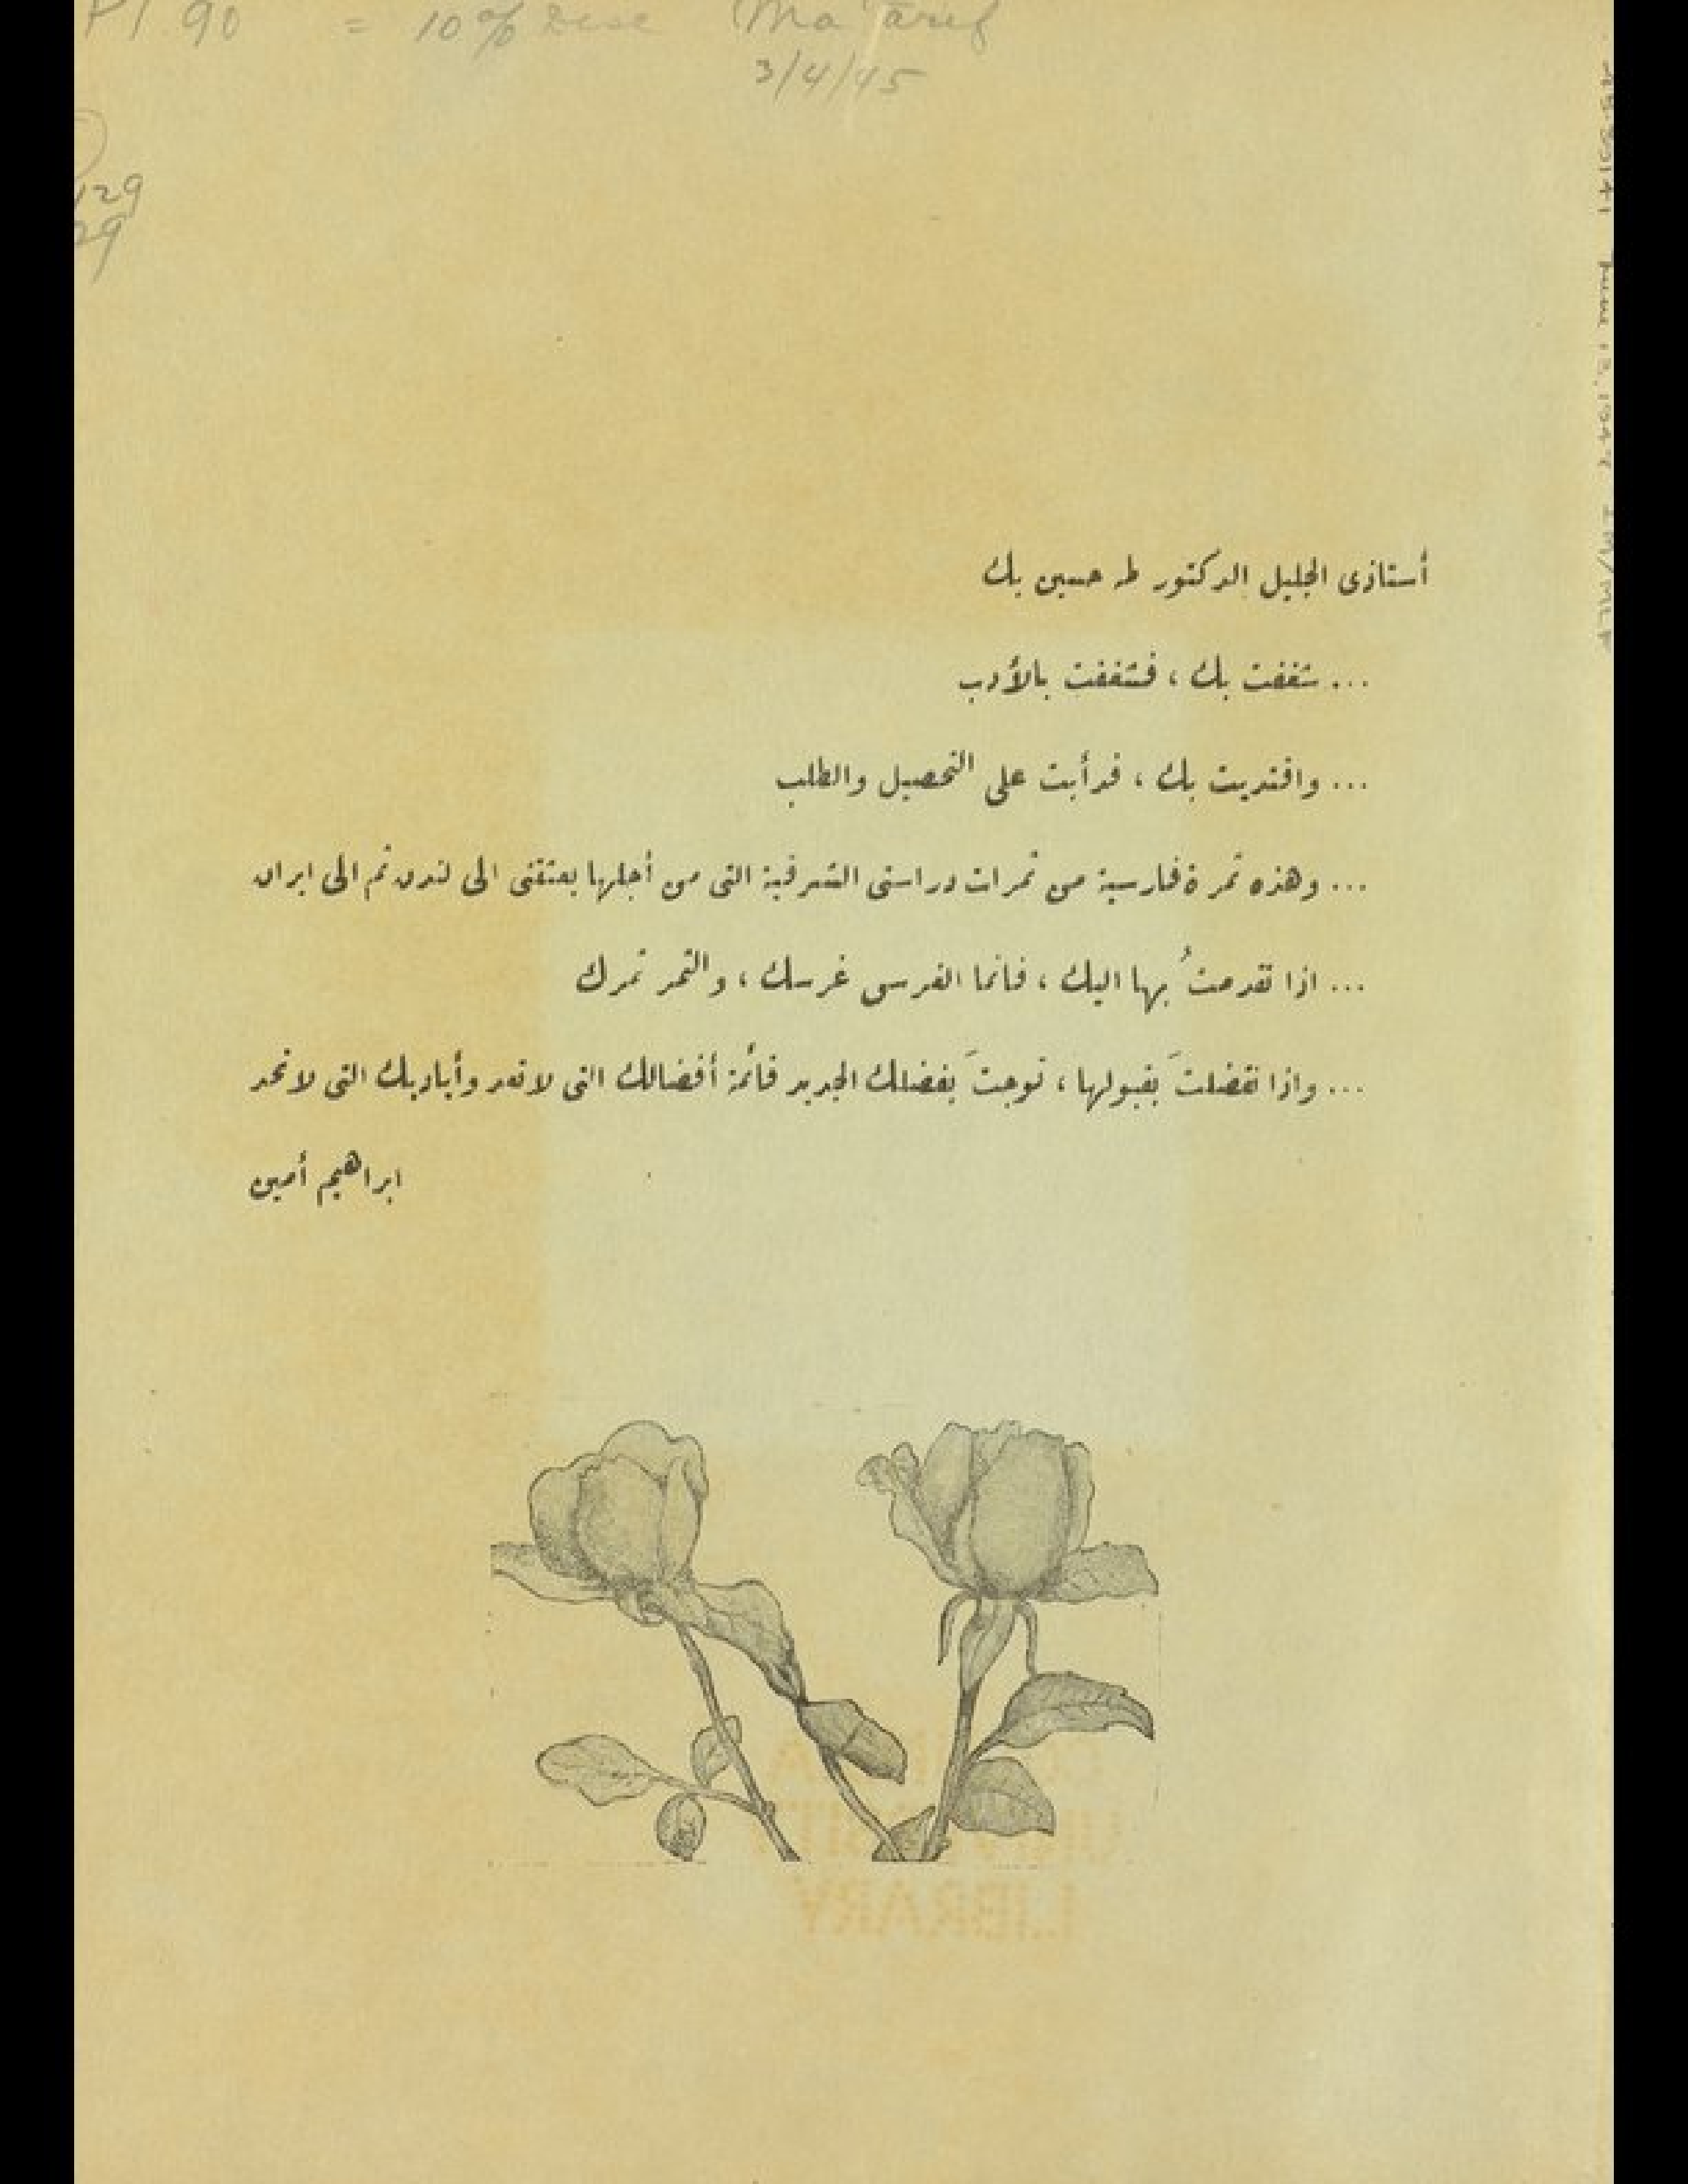 PT 90 = 10% Disc Ma'aref
3/4/45
129
29
أستاذى الجليل الدكتور طه حسين بك
... شغفت بك ، فشغفت بالأدب
... واقتديت بك ، فدأبت على التحصيل والطلب
... وهذه ثمرة فارسية من ثمرات دراستى الشرقية التى من أجلها بعثتنى الى لندن ثم الى ايران
... اذا تقدمتُ بها اليك ، فانما الغرس غرسك ، والثمر ثمرك
... واذا تفضلتَ بقبولها ، توجتَ بفضلك الجديد قائمة أفضالك التى لا تعد وأياديك التى لا تحد
ابراهيم أمين
LIBRARY